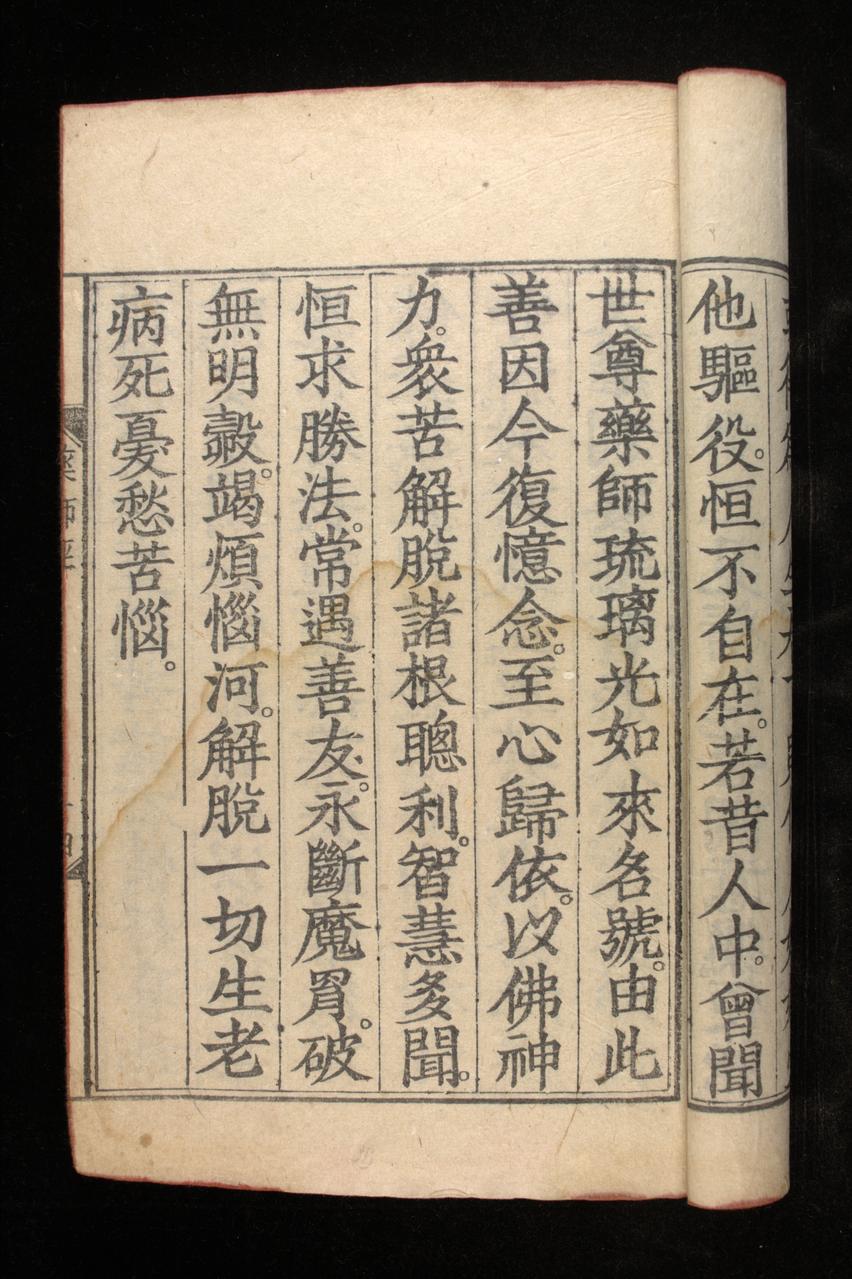 他驅役。恒不自在。若昔人中。曾聞
世尊藥師琉璃光如來名號。由此
善因今復憶念。至心歸依。以佛神
力。眾苦解脫諸根聰利。智慧多聞。
恒求勝法。常遇善友。永斷魔罥。破
無明㲉。竭煩惱河。解脫一切生老
病死憂愁苦惱。
藥師經